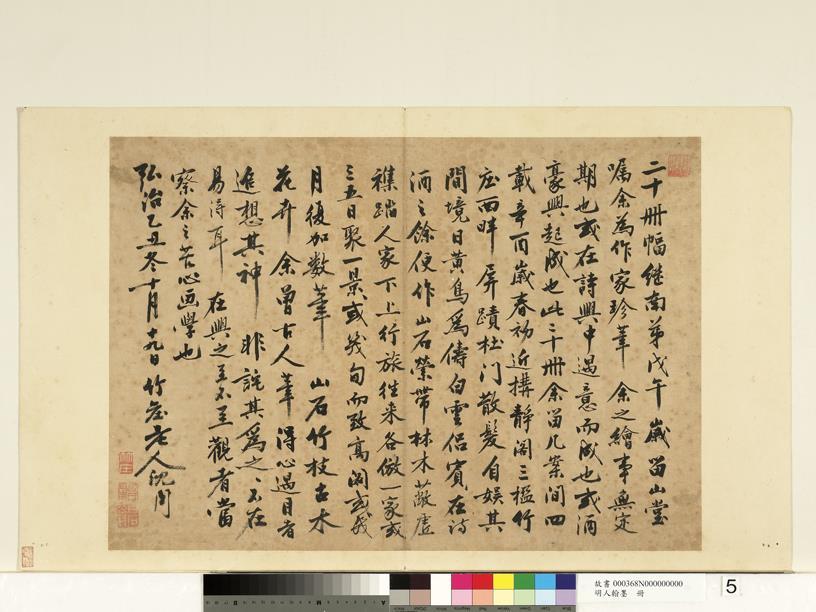 二十冊幅繼南弟戊午歲留山堂
囑余為作家珍筆 余之繪事無定
期也或在詩興中遇意而成也或酒
豪興起成也此二十冊余留几案間四
載辛酉歲春初近搆靜閣三楹竹
庄西畔屏蹟杜门散髮自娛其
間境日黃鳥為儔白雲侶賓在詩
酒之餘便作山石縈帶林木蔽虛
樵踏人家下上行旅往来各倣一家或
三五日聚一景或幾旬而致高閣或幾
月復加數筆 山石竹枝古木
花卉 余曽古人筆 得心遇目者
追想其神 非詫其為之之不在
易得耳 在興之至不至觀者當
察余之苦心画學也
弘治乙丑冬十月十九日竹庄老人沈周
故書 000368N000000000
明人翰墨 冊
5